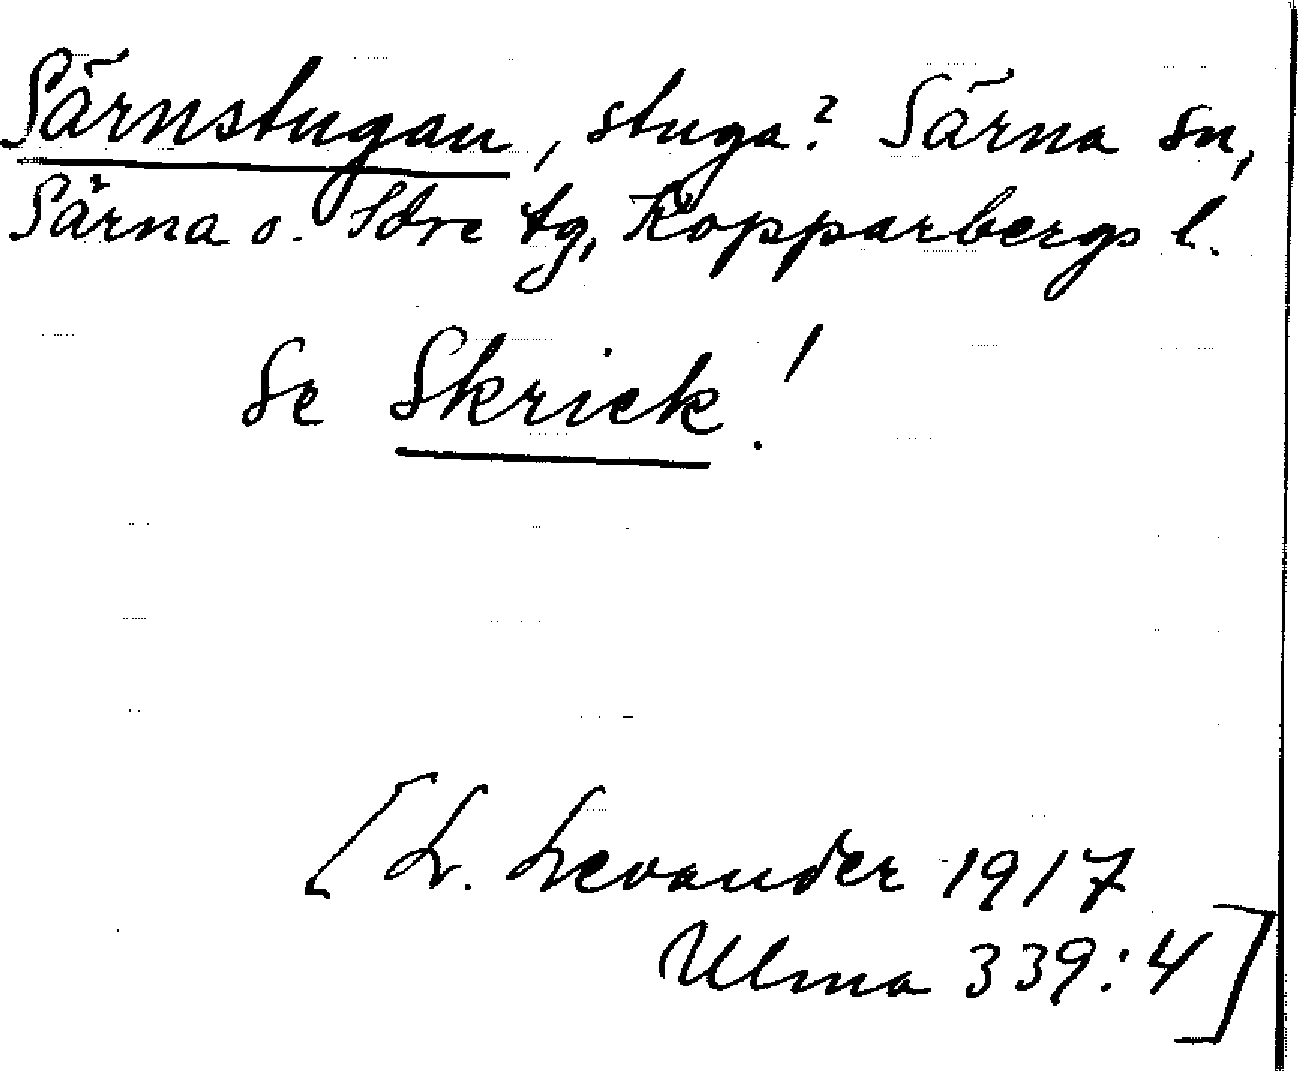 Särnstugan, stuga? Särna sn,
Särna o. Idre tg, Kopparbergs l.
Se Skrick!
[L. Levander 1917
Ulma 339:4]